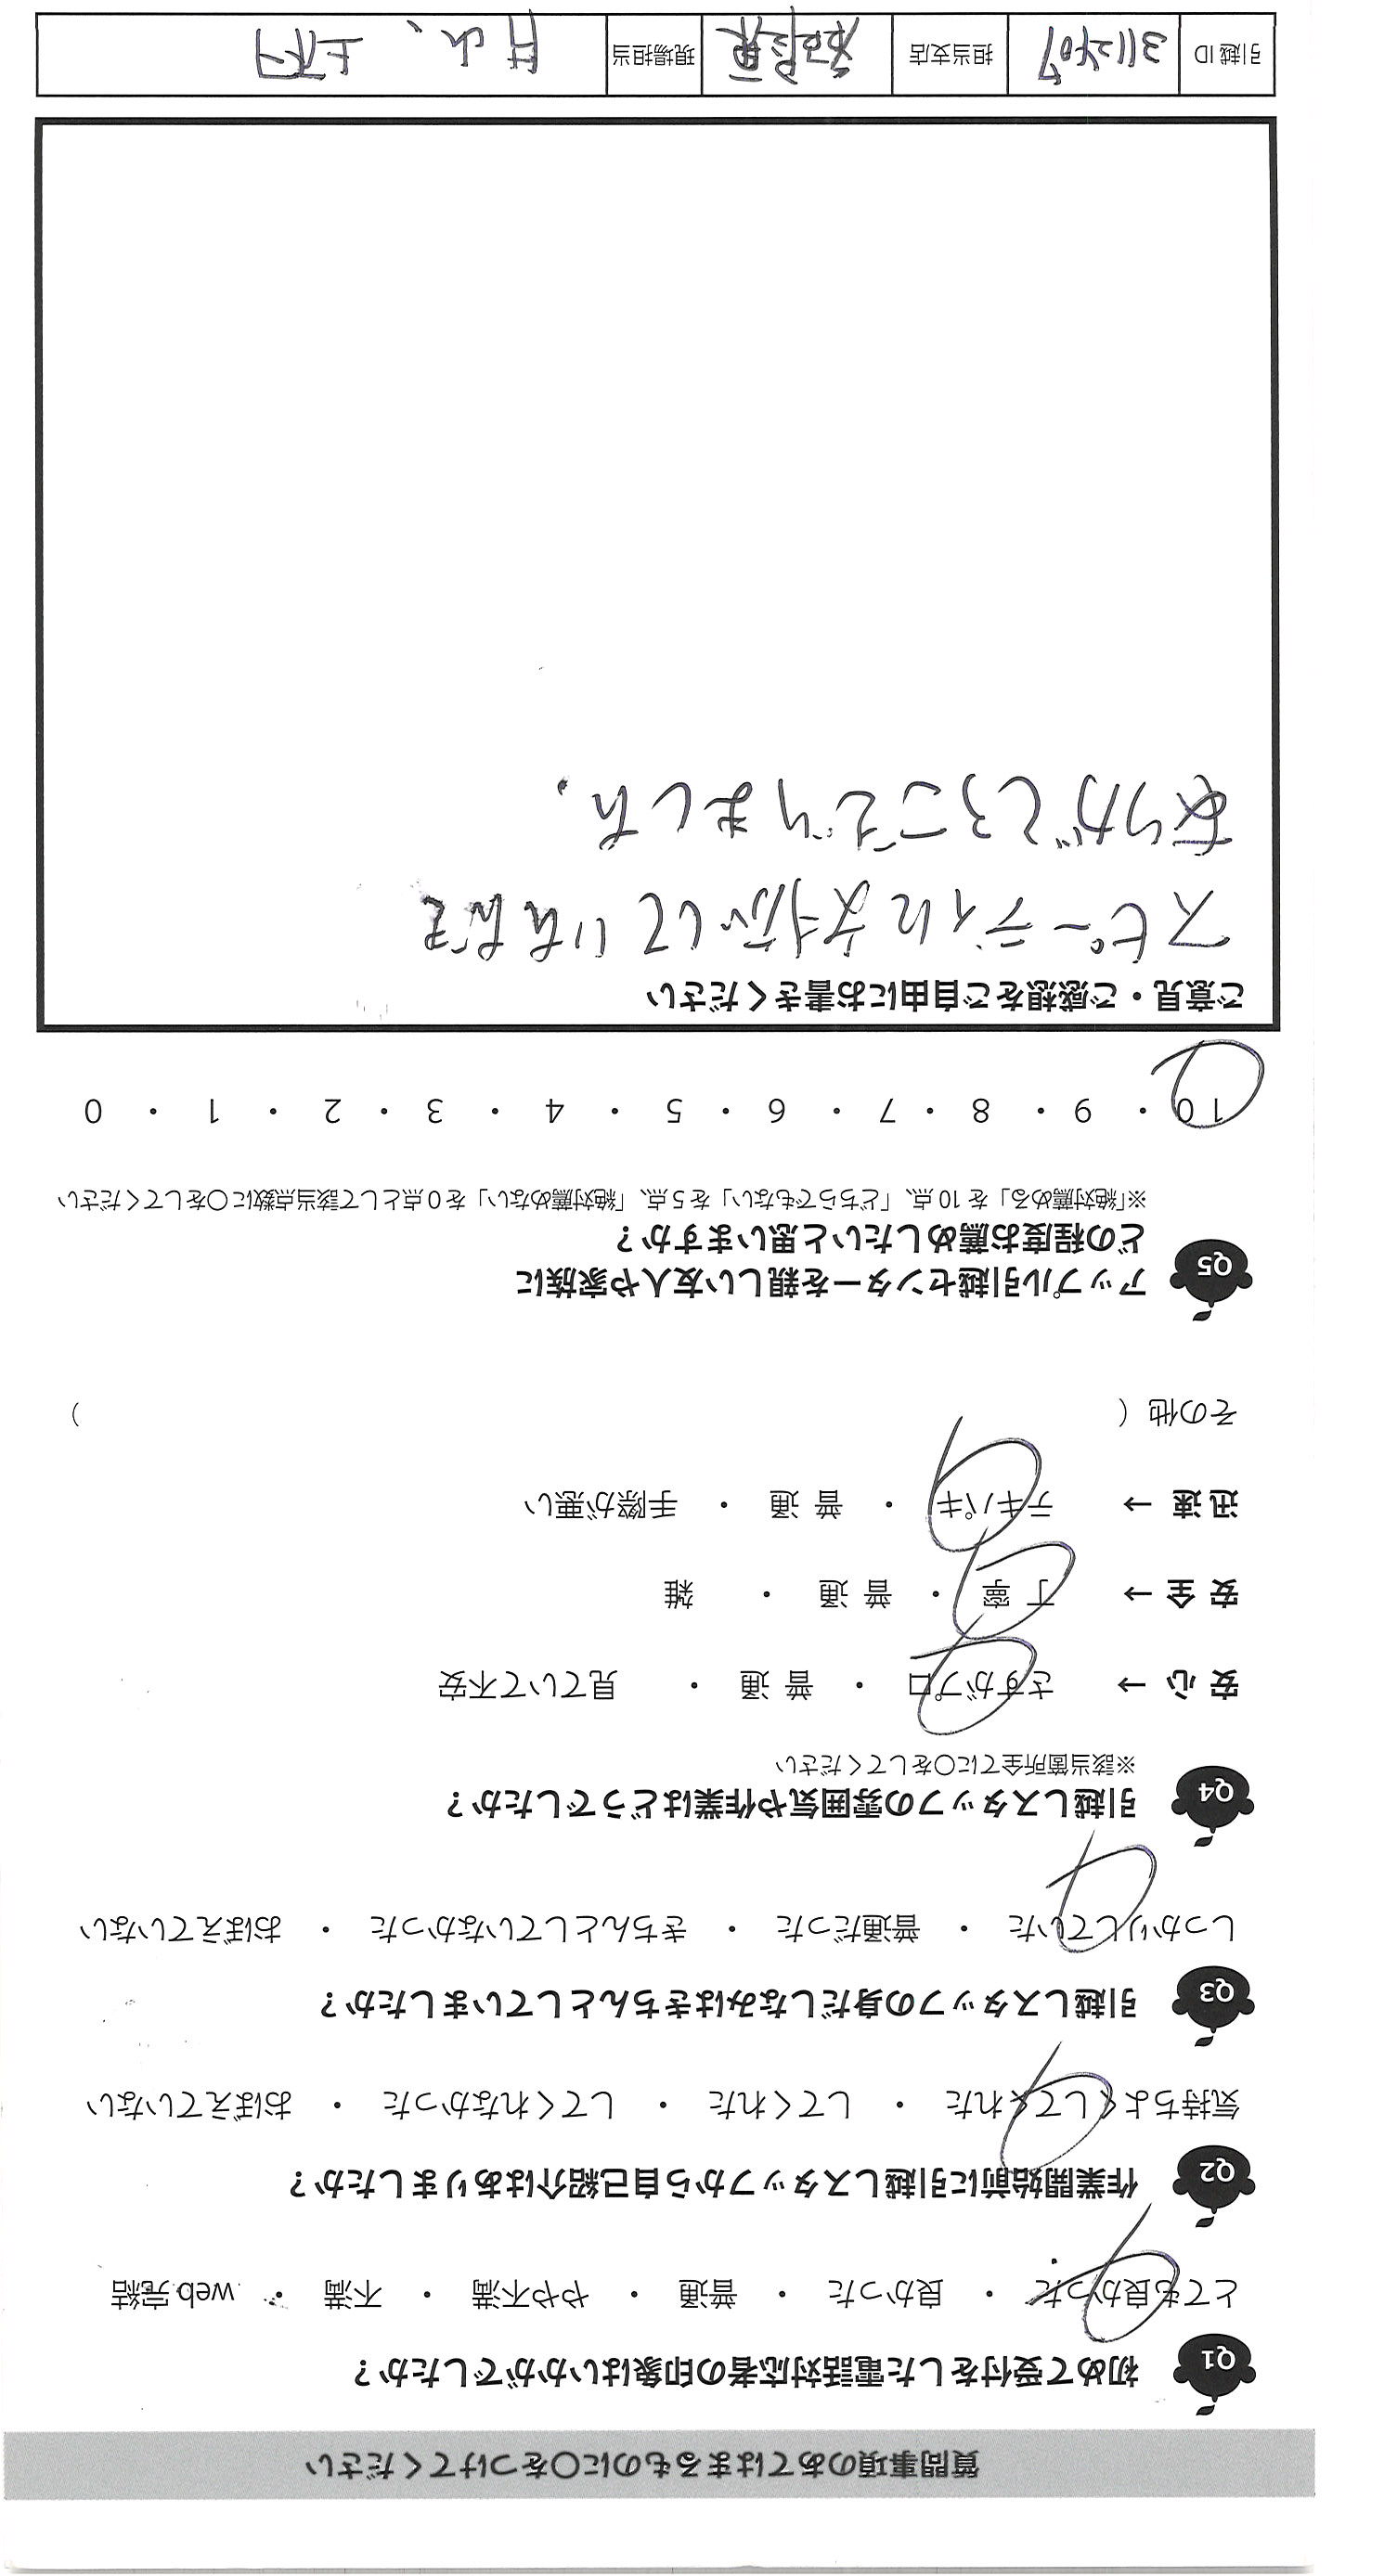 質問事項のあてはまるものに〇をつけてください
Q1 初めて受付をした電話対応者の印象はいかがでしたか？
とても良かった ・ 良かった ・ 普通 ・ やや不満 ・ 不満 ・ web完結
Q2 作業開始前に引越しスタッフから自己紹介はありましたか？
気持ちよくしてくれた ・ してくれた ・ してくれなかった ・ おぼえていない
Q3 引越しスタッフの身だしなみはきちんとしていましたか？
しっかりしていた ・ 普通だった ・ きちんとしていなかった ・ おぼえていない
Q4 引越しスタッフの雰囲気や作業はどうでしたか？
※該当箇所全てに〇をしてください
安心 → さすがプロ ・ 普通 ・ 見ていて不安
安全 → 丁寧 ・ 普通 ・ 雑
迅速 → テキパキ ・ 普通 ・ 手際が悪い
その他（ ）
Q5 アップル引越センターを親しい友人や家族に
どの程度お薦めしたいと思いますか？
※「絶対薦める」を10点、「どちらでもない」を5点、「絶対薦めない」を0点として該当点数に〇をしてください
10 ・ 9 ・ 8 ・ 7 ・ 6 ・ 5 ・ 4 ・ 3 ・ 2 ・ 1 ・ 0
ご意見・ご感想をご自由にお書きください
スピーディに対応していただき
ありがとうございました.
引越ID 3112407 担当支店 現場担当